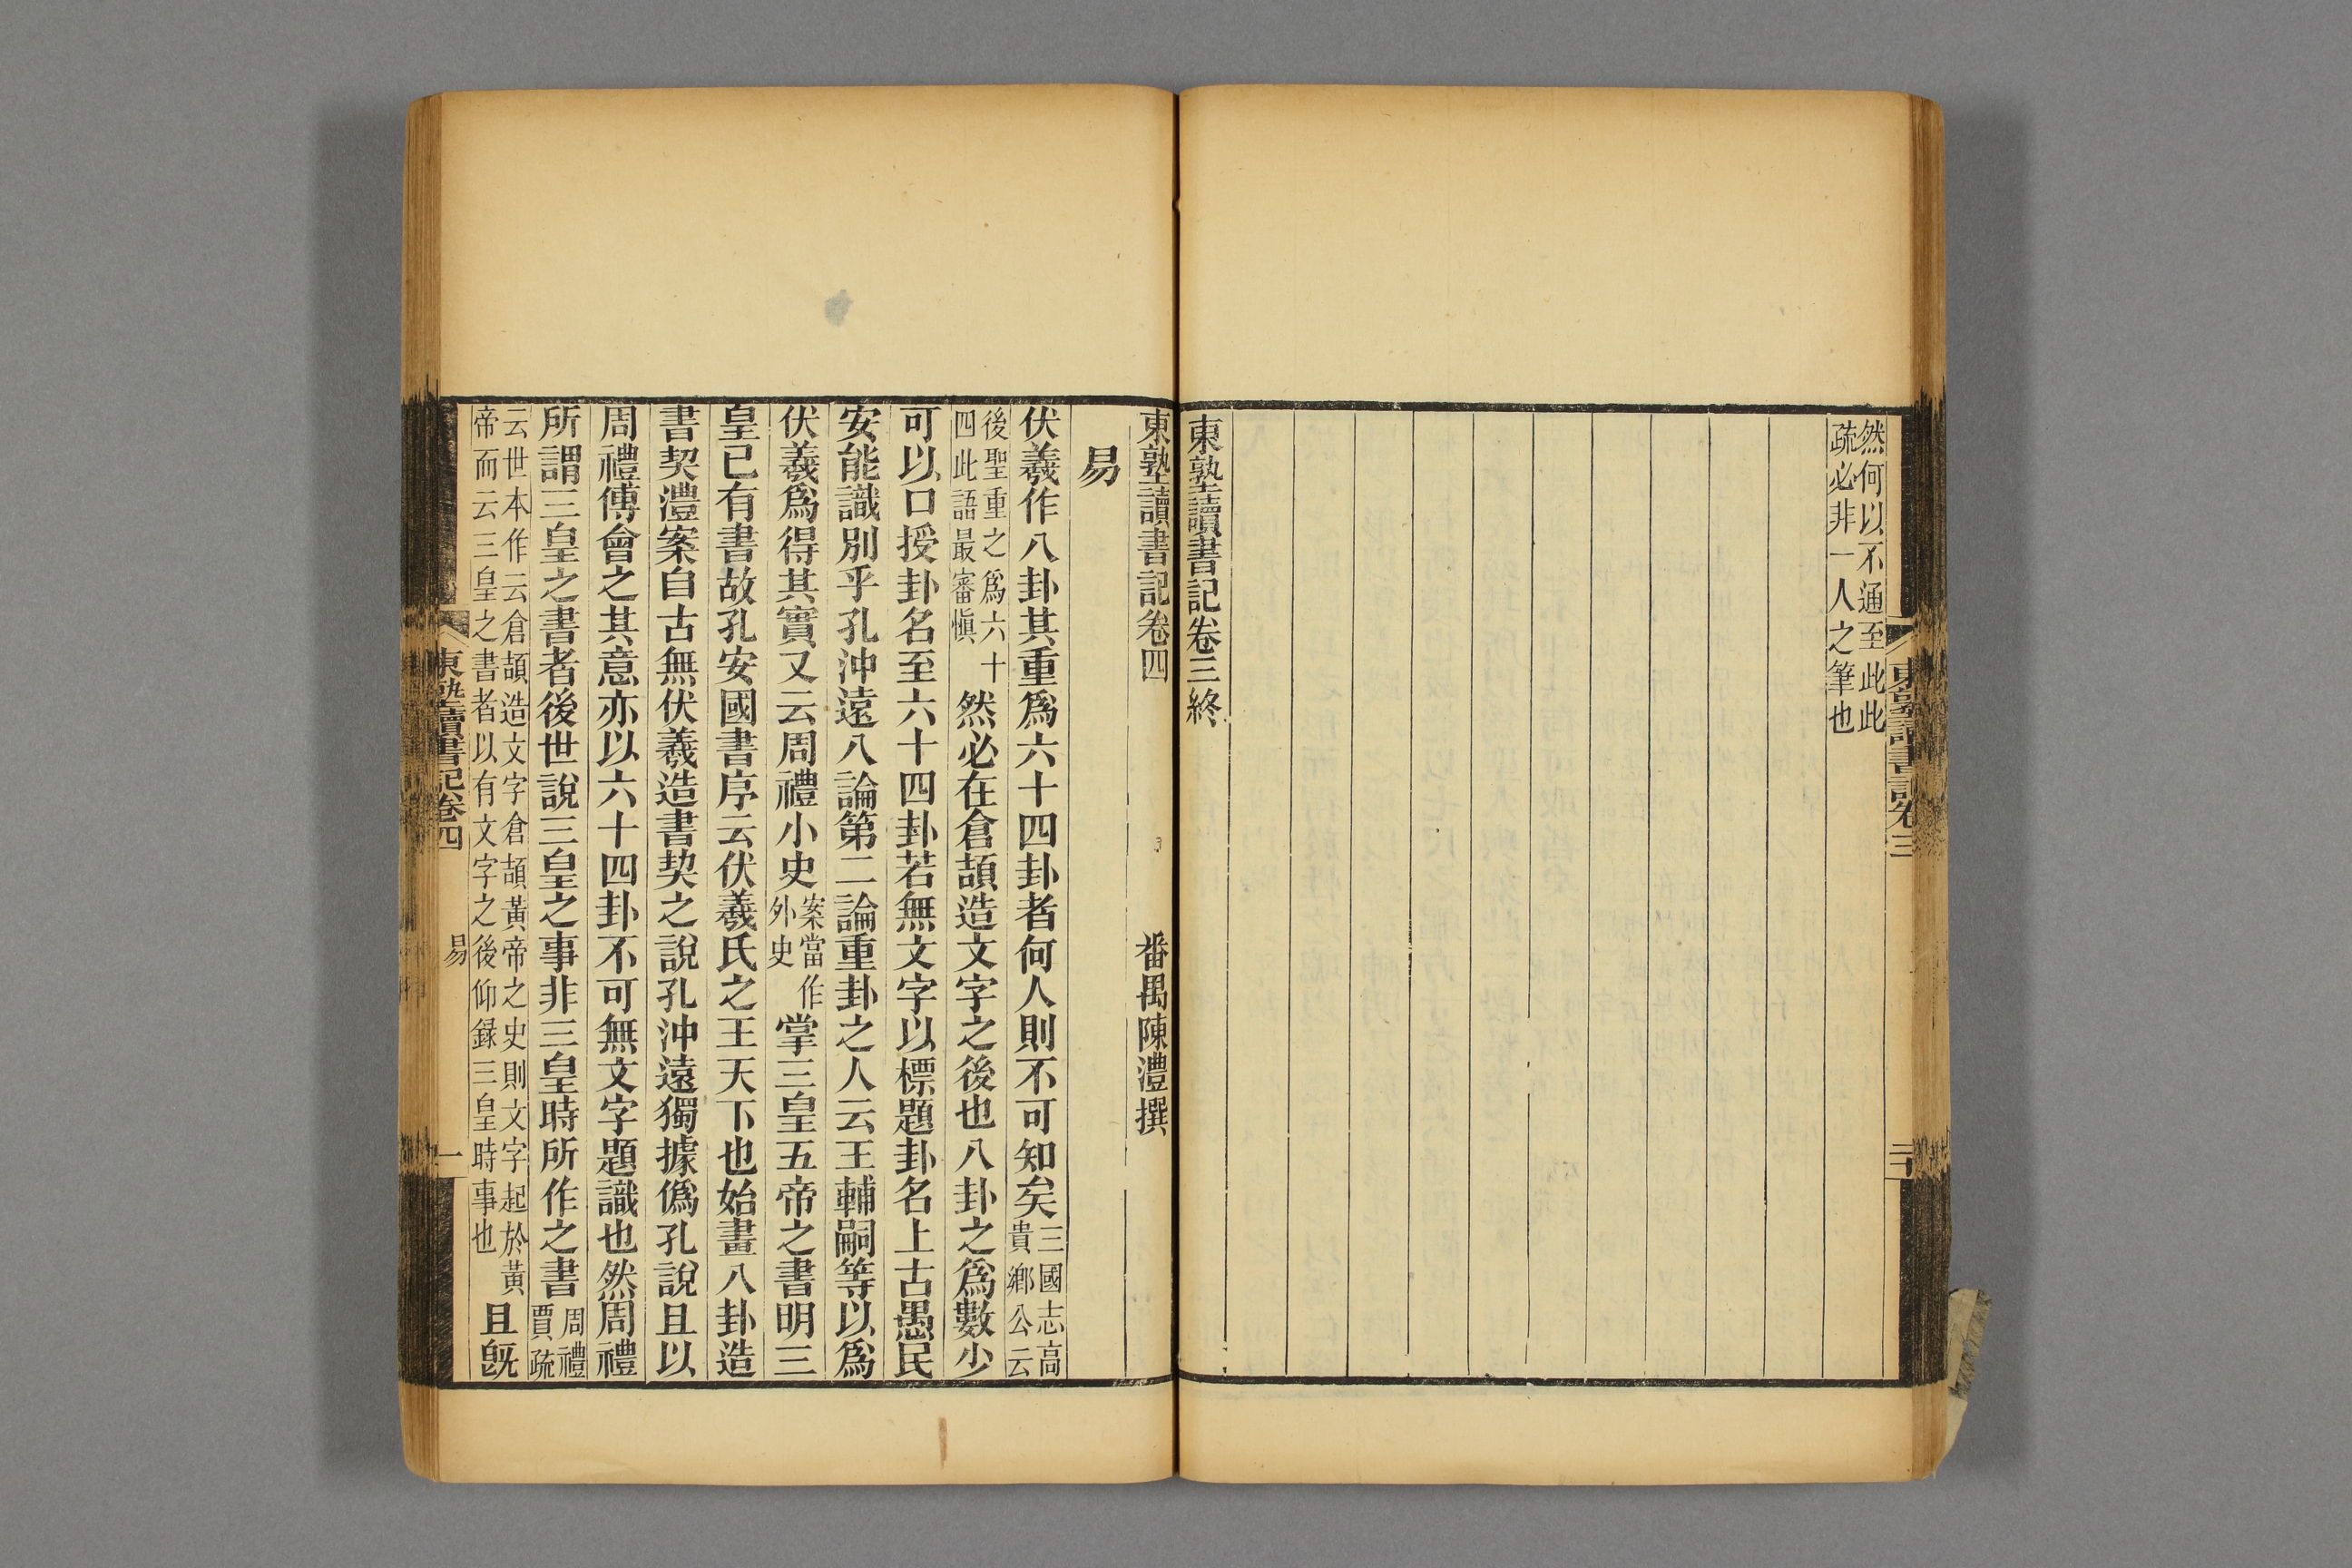 然何以不通至此此
疏必非一人之筆也
東塾讀書記卷三終
東塾讀書記卷三
二十
東塾讀書記卷四
番禺陳澧撰
易
伏羲作八卦其重爲六十四卦者何人則不可知矣三國志高貴鄉公云
後聖重之爲六十四此語最審愼然必在倉頡造文字之後也八卦之爲數少
可以口授卦名至六十四卦若無文字以標題卦名上古愚民
安能識別乎孔沖遠八論第二論重卦之人云王輔嗣等以爲
伏羲爲得其實又云周禮小史案當作外史掌三皇五帝之書明三
皇已有書故孔安國書序云伏羲氏之王天下也始畫八卦造
書契澧案自古無伏羲造書契之說孔沖遠獨據僞孔說且以
周禮傅會之其意亦以六十四卦不可無文字題識也然周禮
所謂三皇之書者後世說三皇之事非三皇時所作之書周禮賈疏
云世本作云倉頡造文字倉頡黃帝之史則文字起於黃帝而云三皇之書者以有文字之後仰録三皇時事也且旣
東塾讀書記卷四
易
一